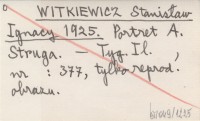 WITKIEWICZ Stanisław
Ignacy 1925. Portret A.
Struga. – Tyg. Il.,
nr : 377, tylko reprod.
obrazu.